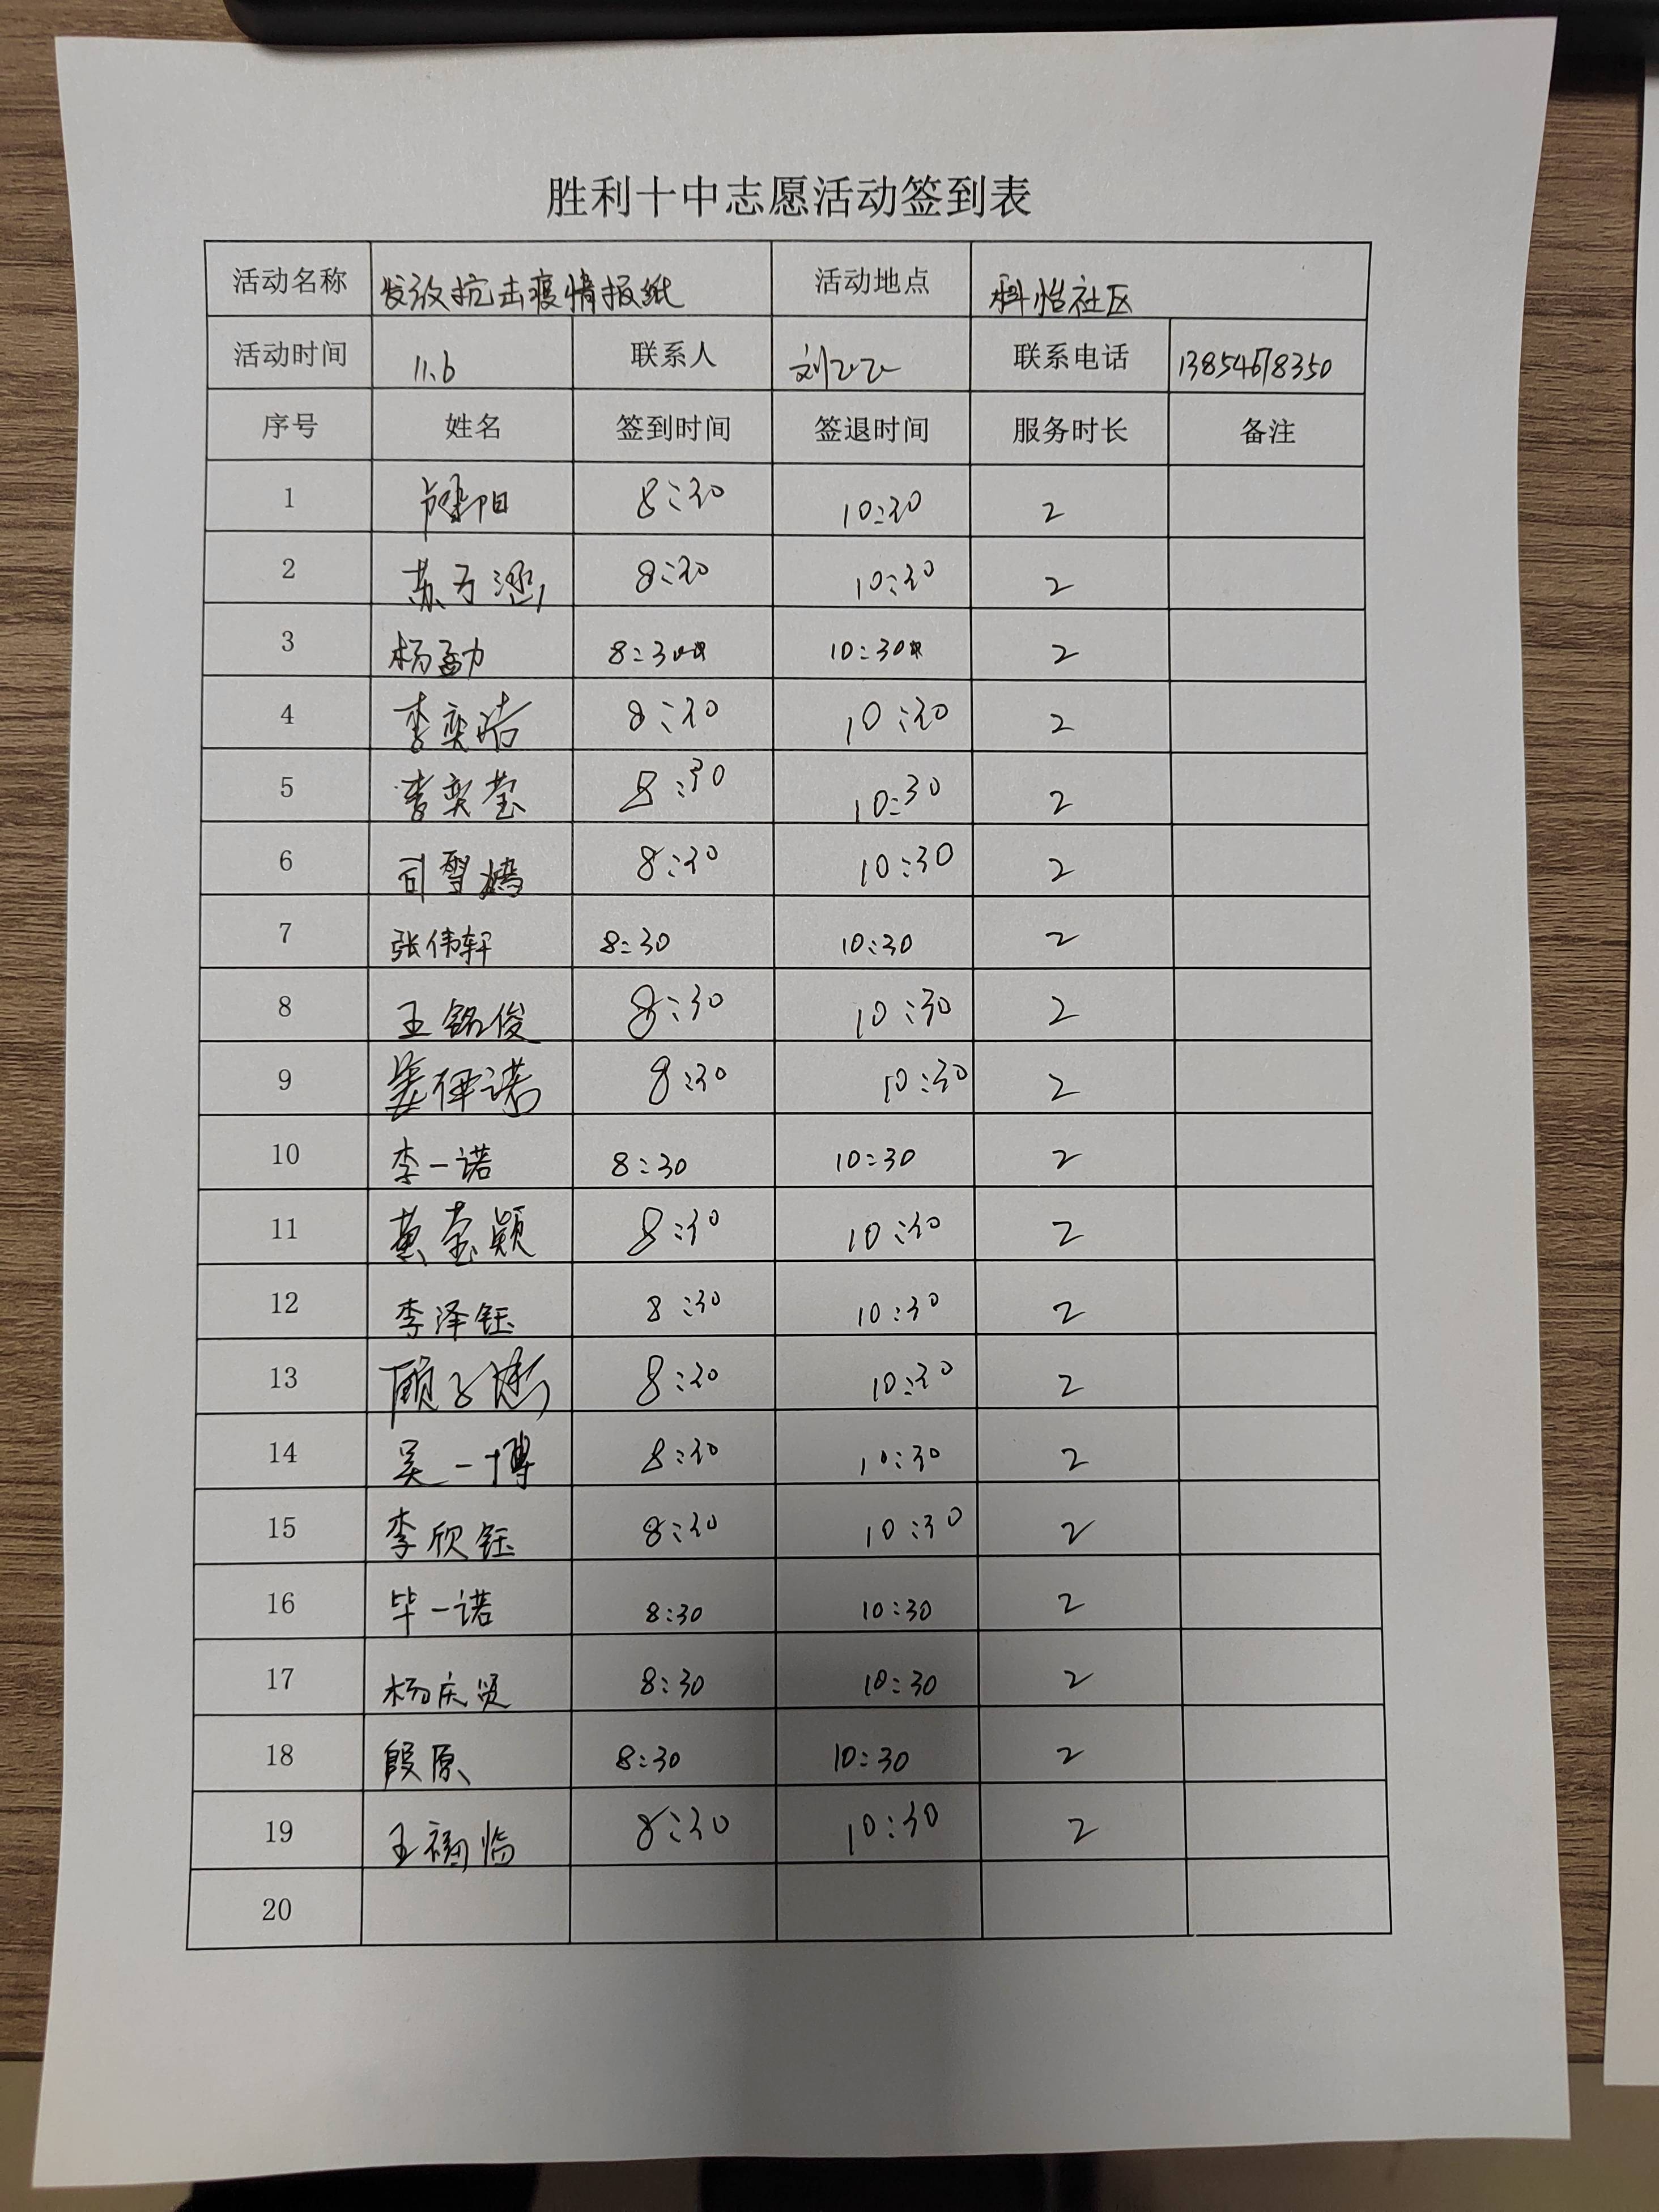 胜利十中志愿活动签到表
活动名称 发放抗击疫情报纸 活动地点 科怡社区
活动时间 11.6 联系人 刘乙乙 联系电话 13854678350
序号 姓名 签到时间 签退时间 服务时长 备注
1 8:30 10:30 2
2 苏子涵 8:30 10:30 2
3 杨孟力 8:30 10:30 2
4 李奕诺 8:30 10:30 2
5 李奕莹 8:30 10:30 2
6 司雪嫣 8:30 10:30 2
7 张伟轩 8:30 10:30 2
8 王铭俊 8:30 10:30 2
9 姜伊诺 8:30 10:30 2
10 李一诺 8:30 10:30 2
11 黄莹颖 8:30 10:30 2
12 李泽钰 8:30 10:30 2
13 顾子 8:30 10:30 2
14 吴一博 8:30 10:30 2
15 李欣钰 8:30 10:30 2
16 毕一诺 8:30 10:30 2
17 杨庆贤 8:30 10:30 2
18 段原 8:30 10:30 2
19 王福临 8:30 10:30 2
20